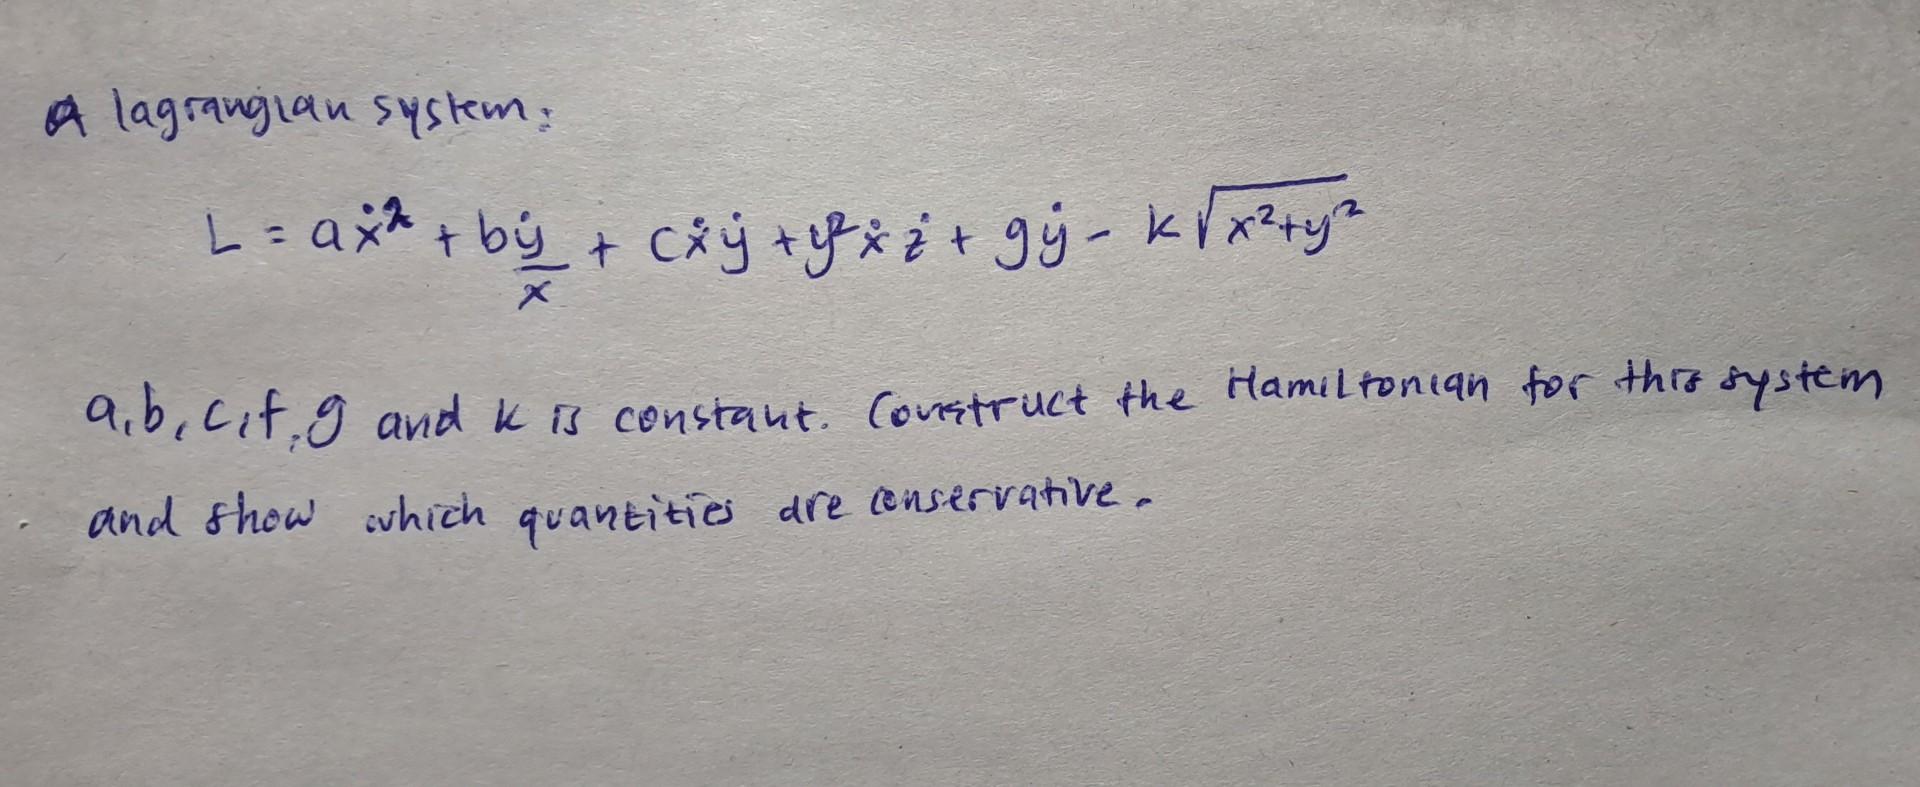 A lagrangian system:
L = aẋ² + bẏ/x + cẋẏ + y²ẋż + gẏ - k√(x²+y²)
a,b,c,f,g and k is constant. Construct the Hamiltonian for this system
and show which quantities are conservative.